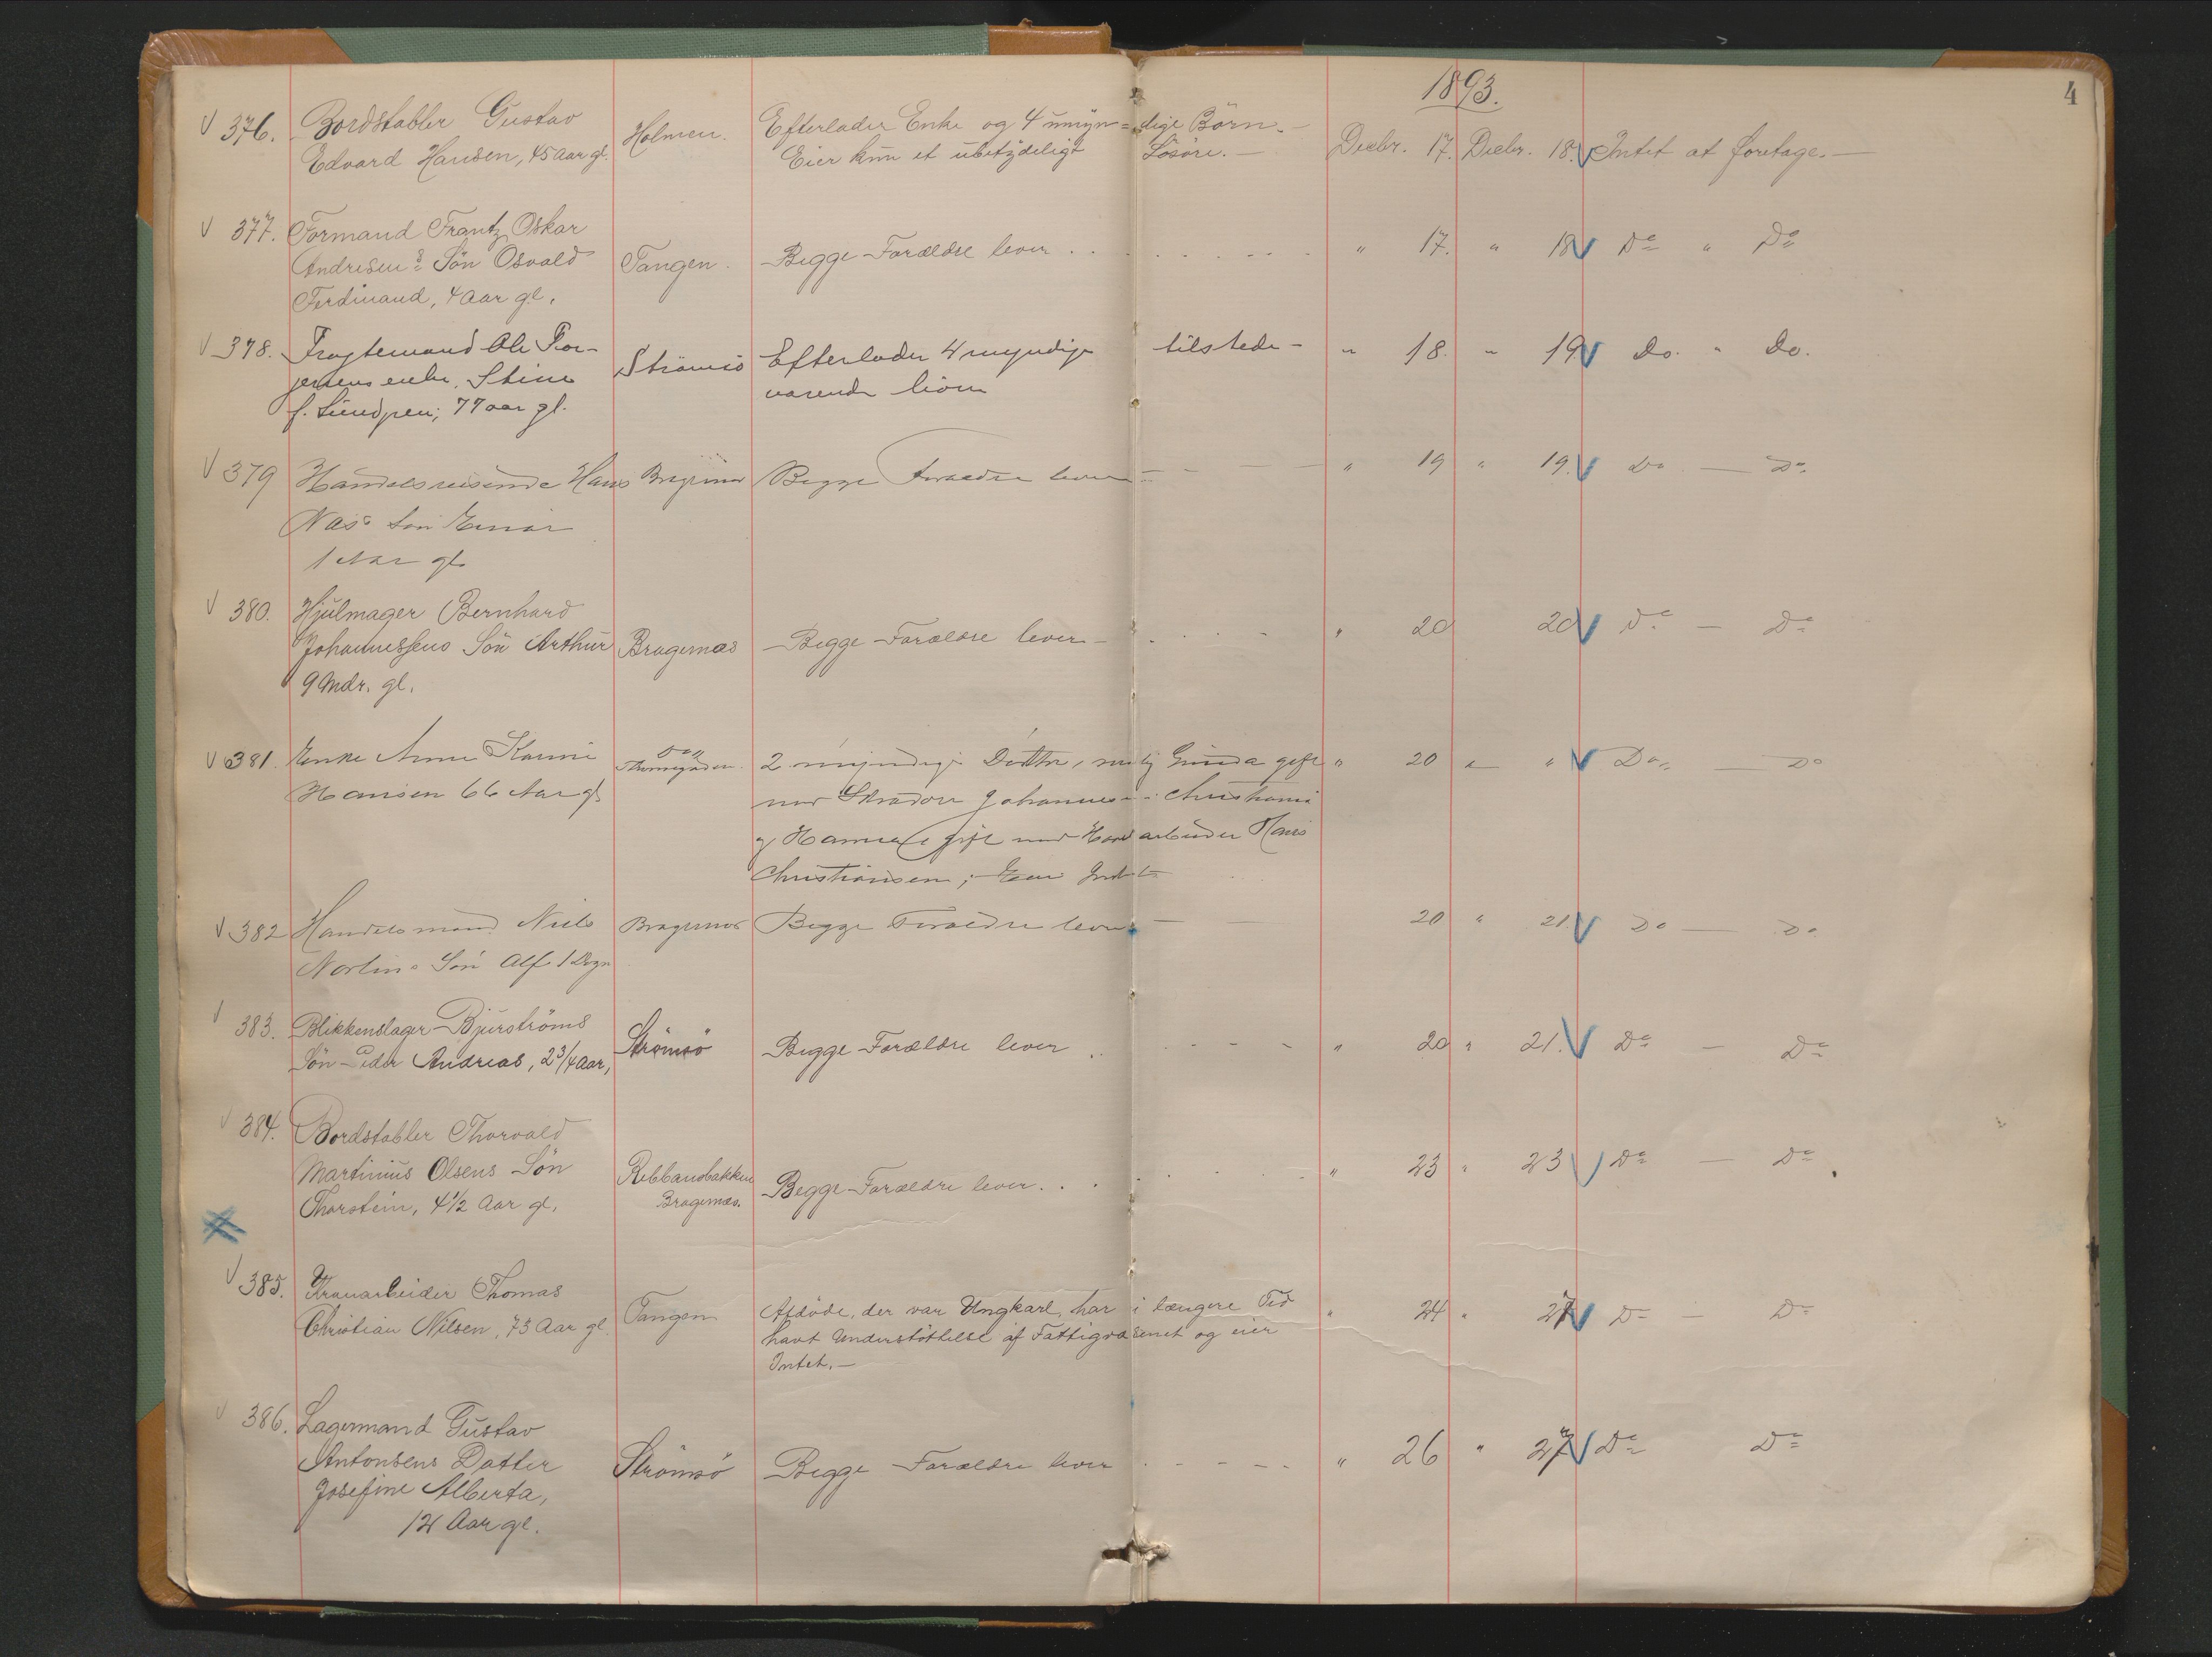 1893.
4
376. Bordstabler Gustav Holmen. Efterlader Enke og 4 umyn=dige Börn.- Decbr. 17. Decbr. 18. Intet at foretage.-
Edvard Hansen, 45 Aar gl. Eier kun et ubetydeligt Lösöre.-
377. Formand Frantz Oskar
Andresens Sön Osvald Tangen. Begge Forældre lever . . " 17. " 18 Do " Do
Ferdinand, 4 Aar gl.
378. Fragtemand Ole Tor-
jersens enke, Stine Strömsö Efterlader 4 myndige tilstede- " 18. " 19 Do. " Do.
f. 77 aar gl. værende börn
379 Handelsreisende Hans Bragernæs Begge Foraeldre lever - " 19 " 19. Do. - Do.
Næss Sön Einar
1 Aar gl
380. Hjulmager Bernhard
Johannessens Sön Arthur Bragernæs Begge Forældre lever - " 20 20 Do - Do
9 Mdr. gl.
381. Enke Anne Karine 2 myndige Döttre, nemlig Gunda gift " 20 " " Do - Do
Hansen 66 Aar gl med Johannesen i Christiania
og gift med Haandarbeider Hans
Christiansen; Eier Intet
382 Handelsmand Niels Bragernæs Begge Foraeldre lever - 20 " 21. Do - Do.
Sön Alf 1 Dögn
383. Blikkenslager Bjurströms
Sön Peder Andreas, 2 3/4 Aar, Strömsö Begge Forældre lever . . " 20 " 21. Do - Do
384. Bordstabler Thorvald
Martinius Olsens Sön Ribbansbakken Begge Forældre lever. . . " 23 " 23 Do - Do
Thorstein, 4 1/2 Aar gl. Bragernæs.
385. Kranarbeider Thomas
Christian Nilsen, 73 Aar gl. Tangen Afdöde, der var Ungkarl, har i længere Tid " 24 " 27 Do - Do
havt Understöttelse af Fattigvæsenet og eier
Intet.-
386. Lagermand Gustav
Antonsens Datter Strömsö Begge Forældre lever " 26 " 27 Do Do
Josefine Alberta,
12 Aar gl.